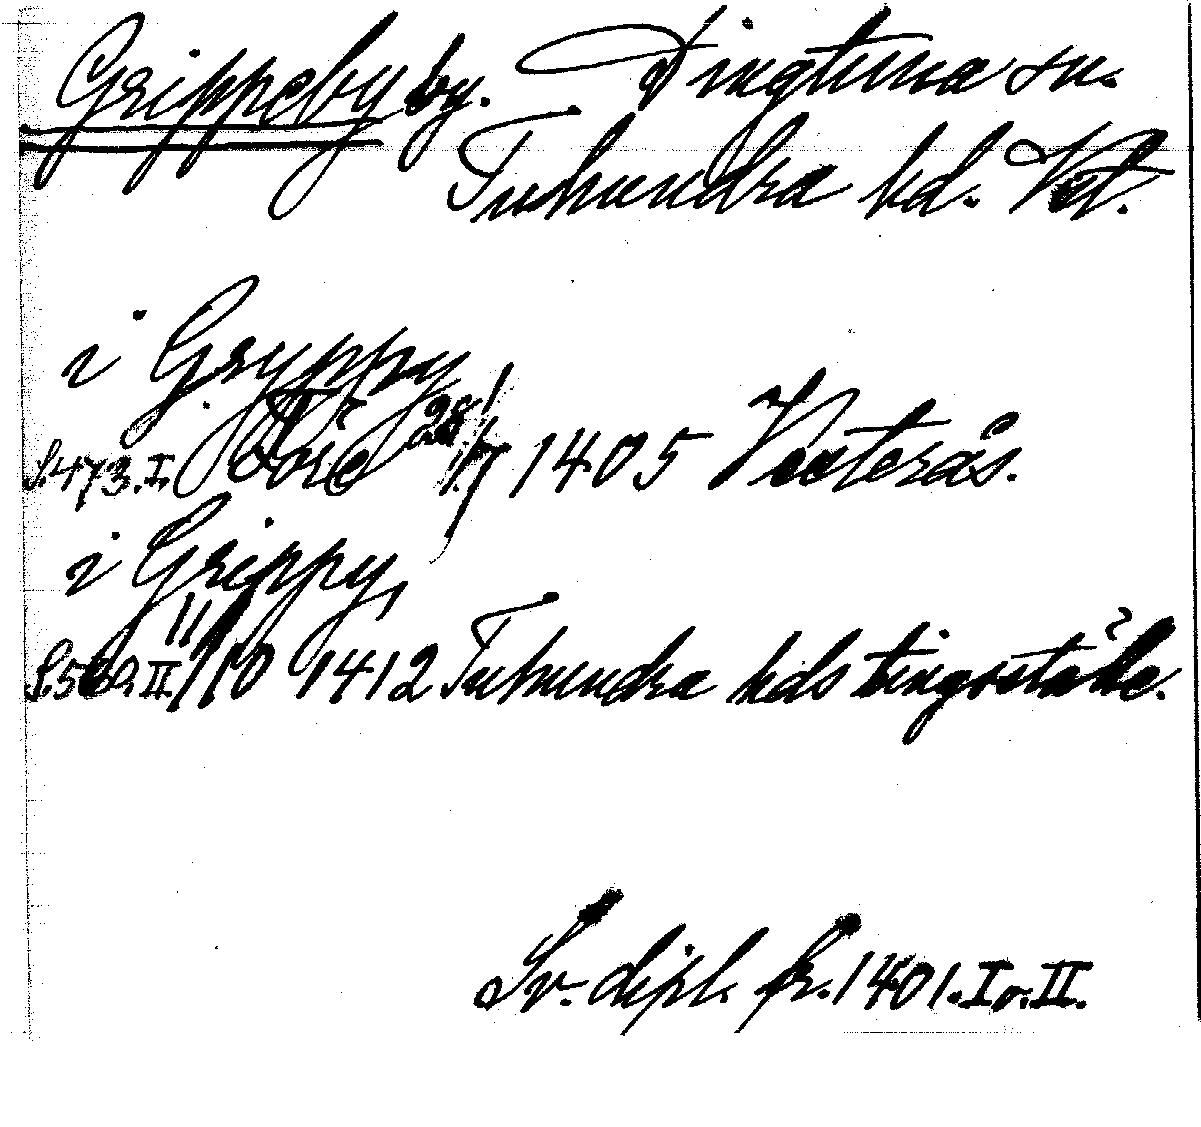 Grippeby by. Dingtuna sn.
Tuhundra hd. Vstl.
i Gryppy
S. 473. I. 28/7 1405 Västerås.
i Grippy,
S. 569. II. 11/10 1412 Tuhundra hds tingsställe.
Sv. dipl. fr. 1401. I o. II.